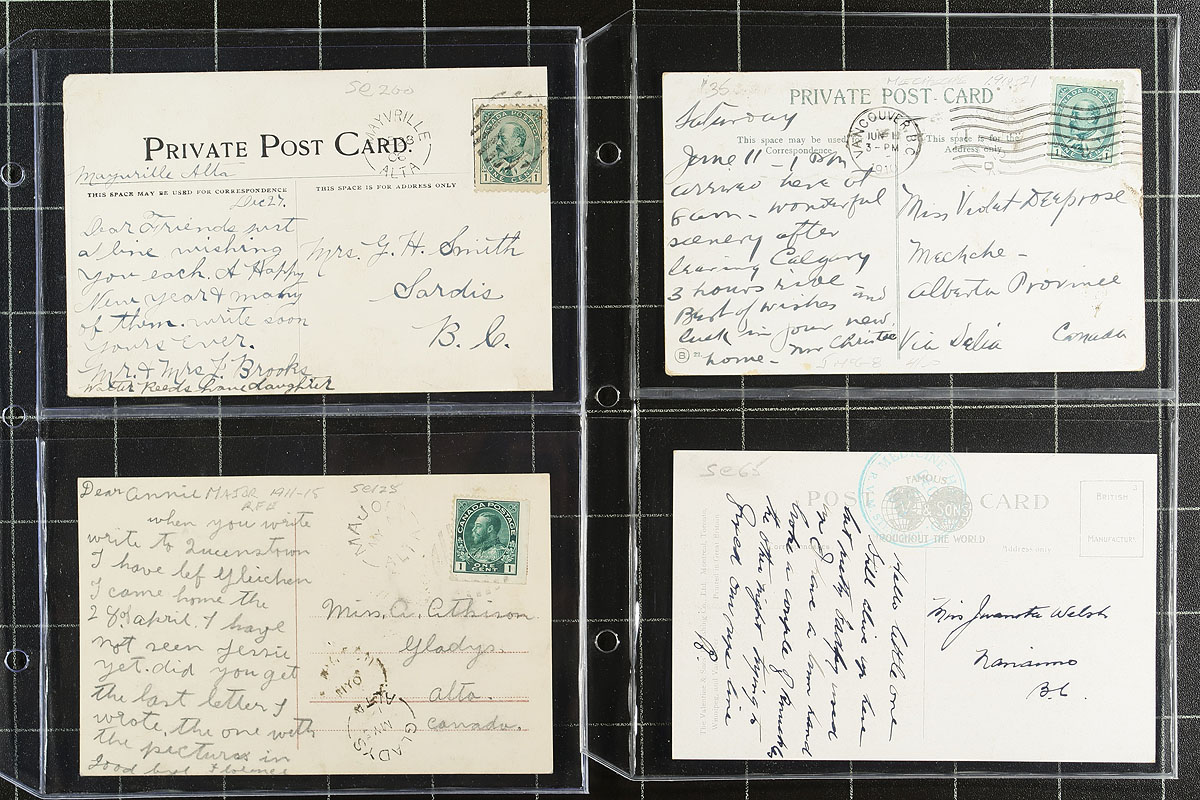 SC 200
PRIVATE POST CARD.
MAYVRILLE
ALTA
CANADA POSTAGE
1 ONE CENT 1
Mayvrille Alta
THIS SPACE MAY BE USED FOR CORRESPONDENCE
THIS SPACE IS FOR ADDRESS ONLY
Dec 27.
Dear Friends just
a line wishing
you each. A Happy
New year & many
of them. write soon
yours Ever.
Mr. & Mrs. J. Brooks
Reeds daughter
Mrs. G. H. Smith
Sardis
B. C.
'36
1910-21
PRIVATE POST CARD
This space may be used
Correspondence
This space is for the
Address only
VANCOUVER, B.C.
JUN 11
3-PM
1910
CANADA POSTAGE
1 1
Saturday
June 11 - 1 pm
arrived here at
6 am - wonderful
scenery after
leaving Calgary
3 hours ride and
Best of wishes
luck in your new
home - Mr Christee
B
Miss Violet Deeprose
Meeheche -
Alberta Province
Via Delia Canada
SC 125
MAJOR 1911-15
RF4
Dear Annie
when you write
write to Queenstown
I have lef Gleichen
I came home the
28 of april. I have
not seen Jessie
yet. did you get
the last letter I
wrote, the one with
the pictures in
Good bye Florence
MAJO
CANADA POSTAGE
1 ONE CENT 1
Miss. A. Atkison
Gladys.
Alta.
Canada.
GLADYS
SC 65
MEDICINE
FAMOUS
POST CARD
V & SONS
THROUGHOUT THE WORLD
Address only
BRITISH
MANUFACTURE
Hello little one
Still alive up here
but pretty
one hand
broke a couple of knuckles
the other night trying to
J.
Miss Juanita Welsh
Nanaimo
B.C.